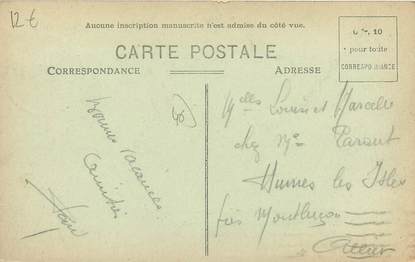 12 €
Aucune inscription manuscrite n'est admise du côté vue.
CARTE POSTALE
CORRESPONDANCE
ADRESSE
0 fr. 10
pour toute
CORRESPONDANCE
Bonnes vacances
Amitiés
Melles Louise et Marcelle
chez Mme Parout
les Isles
près Montluçon
Allier